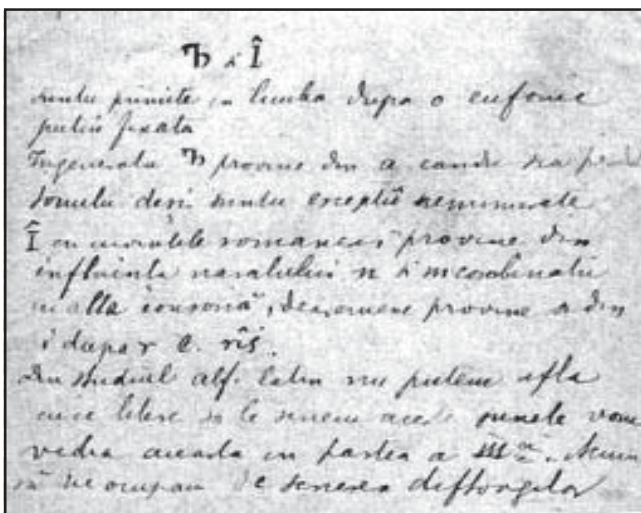 Ъ și Î
suntu primite in limba dupa o eufonie
putin fixata
In generalu Ъ provine din a candu
tonulu desi suntu exceptiĭ nenumerate
Î cu cuvintele romanesci provine din
influinta nasalului n si in combinatii
cu alta consonă, deasemene provine a din
i dupa r e. rîs.
Din studiul alf. latin nu putem afla
cu ce litere sa le scriem aceste sunete vom
vedea aceasta in partea a IIIa. Acum
să ne ocupam de scrierea diftongilor